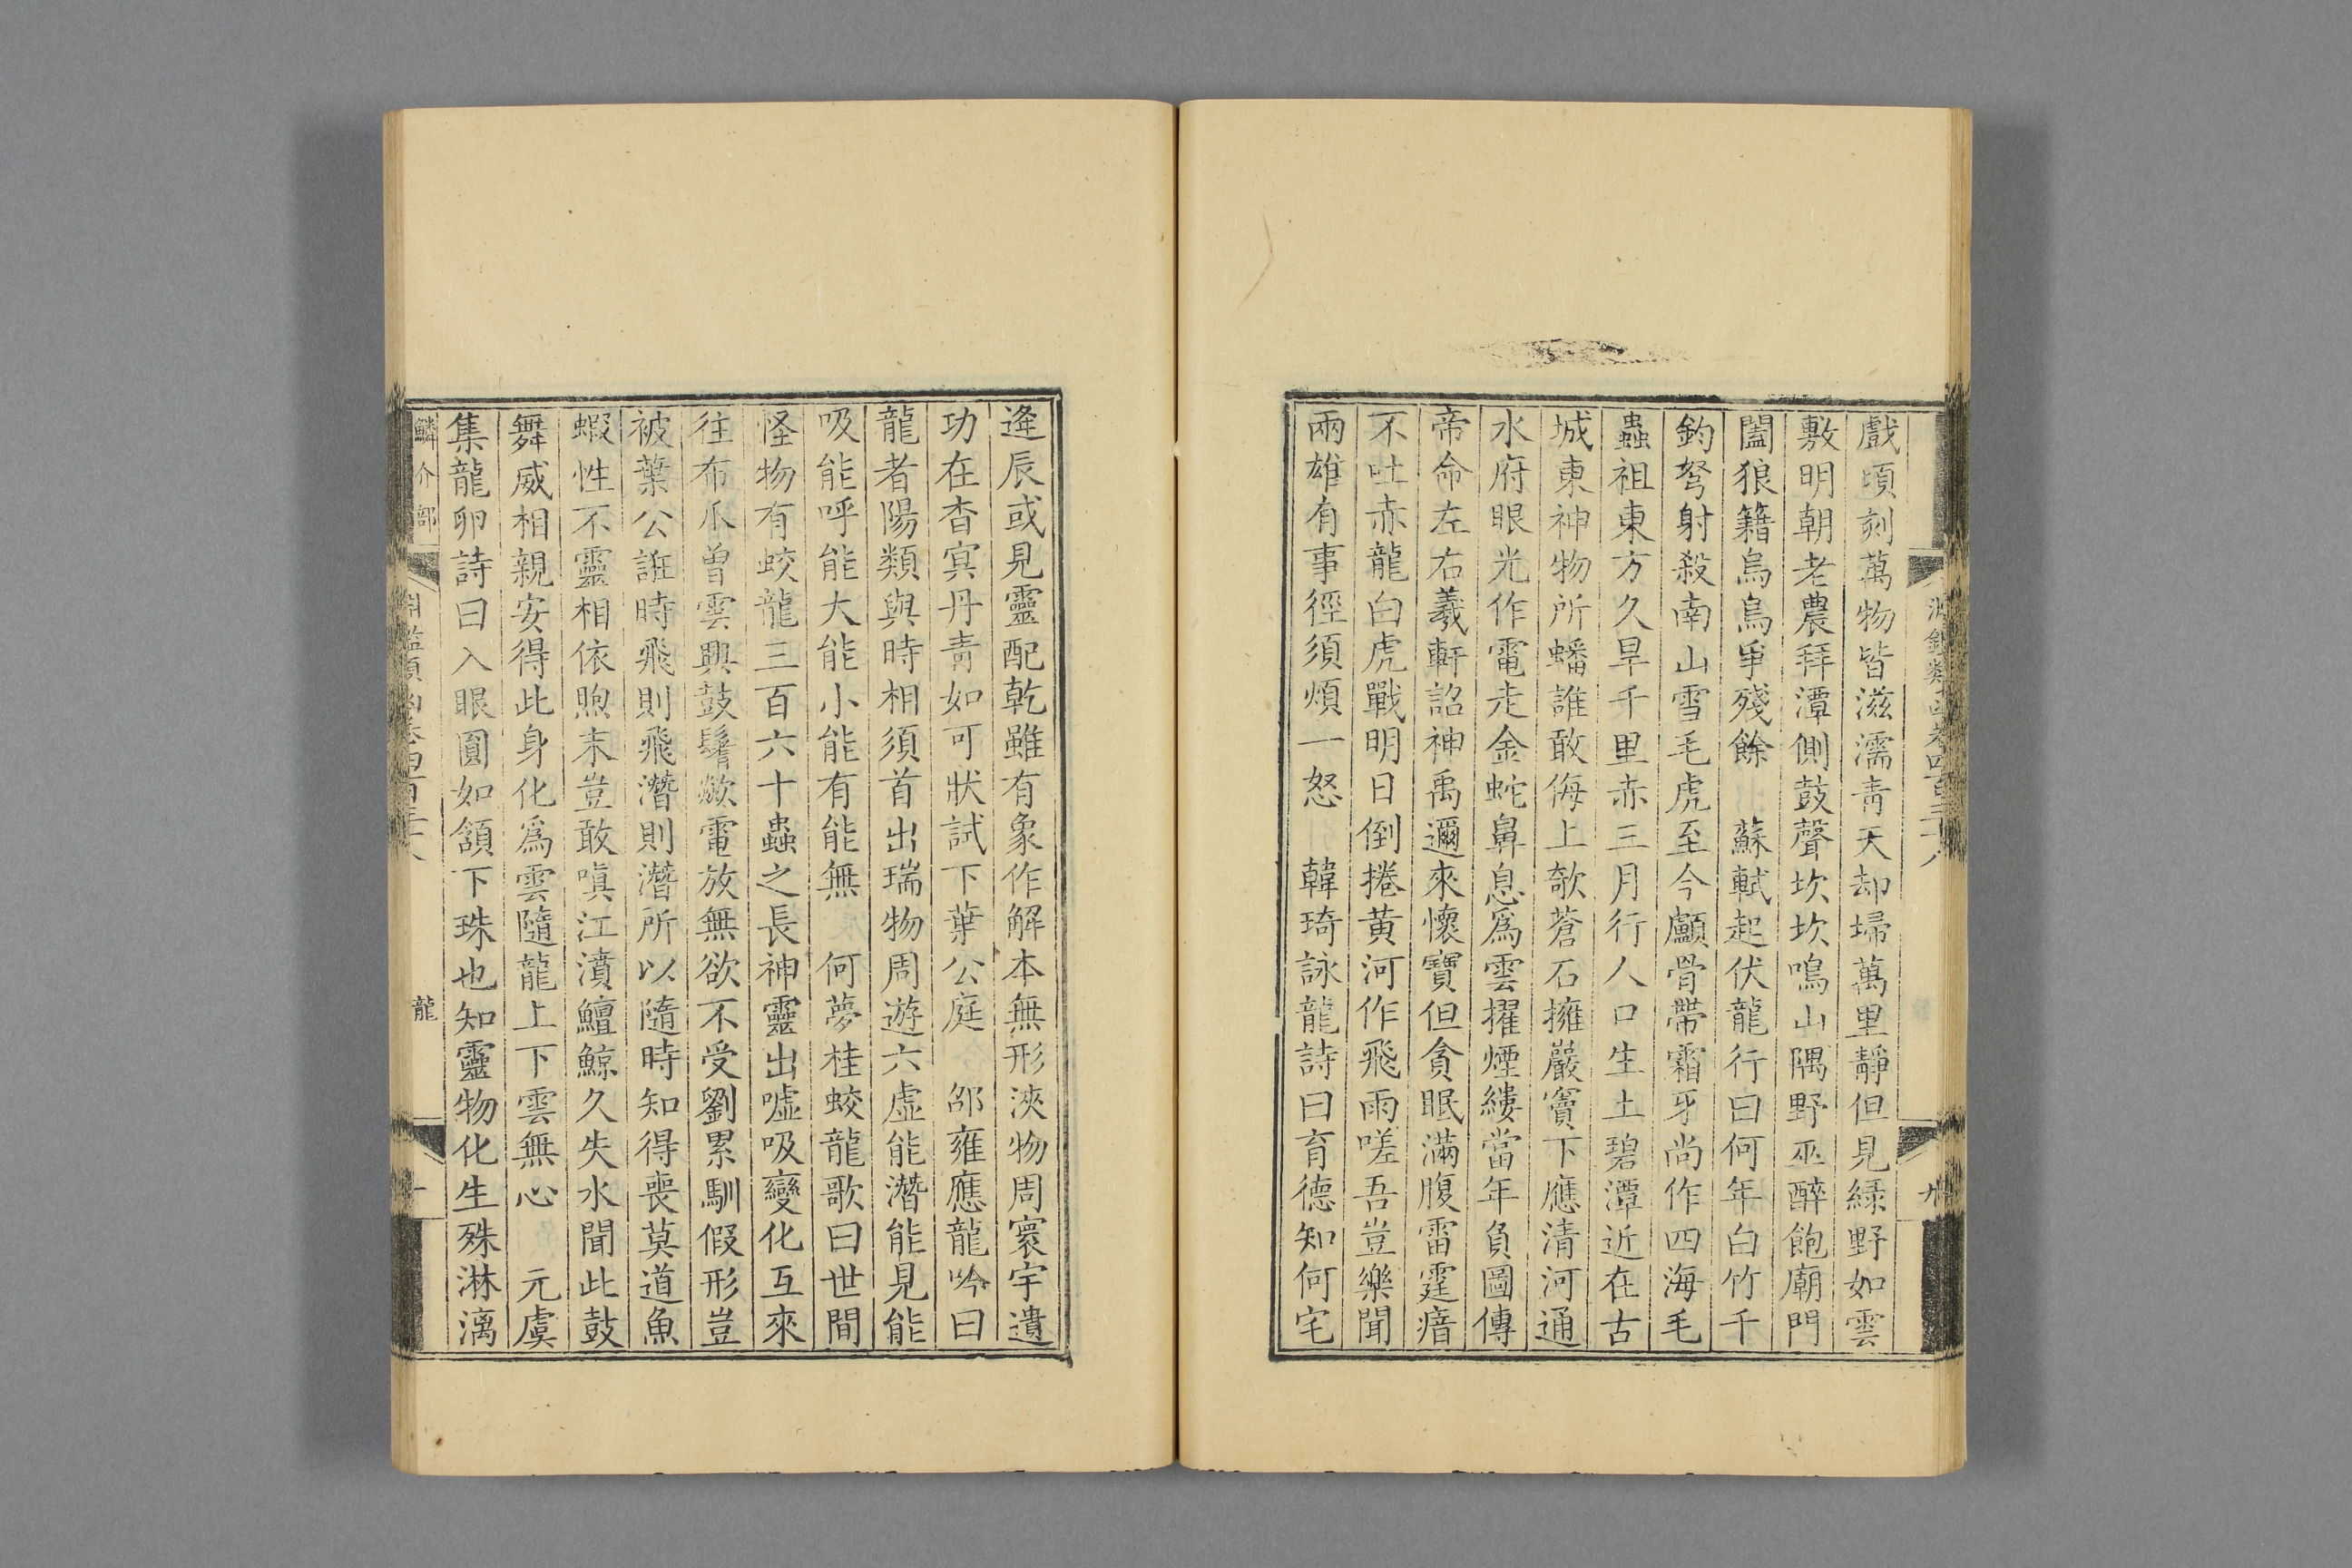 戲頃刻萬物皆滋濡青天却埽萬里靜但見綠野如雲
敷明朝老農拜潭側鼓聲坎坎鳴山隅野巫醉飽廟門
闔狼籍烏鳥爭殘餘 蘇軾起伏龍行曰何年白竹千
鈞弩射殺南山雪毛虎至今顱骨帶霜牙尚作四海毛
蟲祖東方久旱千里赤三月行人口生土碧潭近在古
城東神物所蟠誰敢侮上欹蒼石擁巖竇下應清河通
水府眼光作電走金蛇鼻息爲雲擢煙縷當年負圖傳
帝命左右羲軒詔神禹邇來懷寶但貪眠滿腹雷霆瘖
不吐赤龍白虎戰明日倒捲黃河作飛雨嗟吾豈樂聞
兩雄有事徑須煩一怒 韓琦詠龍詩曰育德知何宅
逢辰或見靈配乾雖有象作解本無形浹物周寰宇遺
功在杳冥丹靑如可狀試下葉公庭 邵雍應龍吟曰
龍者陽類與時相須首出瑞物周遊六虛能潛能見能
吸能呼能大能小能有能無 何夢桂蛟龍歌曰世間
怪物有蛟龍三百六十蟲之長神靈出噓吸變化互來
往布爪曾雲興鼓鬐歘電放無欲不受劉累馴假形豈
被葉公誑時飛則飛潛則潛所以隨時知得喪莫道魚
蝦性不靈相依煦沫豈敢嗔江濆鱣鯨久失水聞此鼓
舞威相親安得此身化爲雲隨龍上下雲無心 元虞
集龍卵詩曰入眼圓如頷下珠也知靈物化生殊淋漓
鱗介部
龍
九